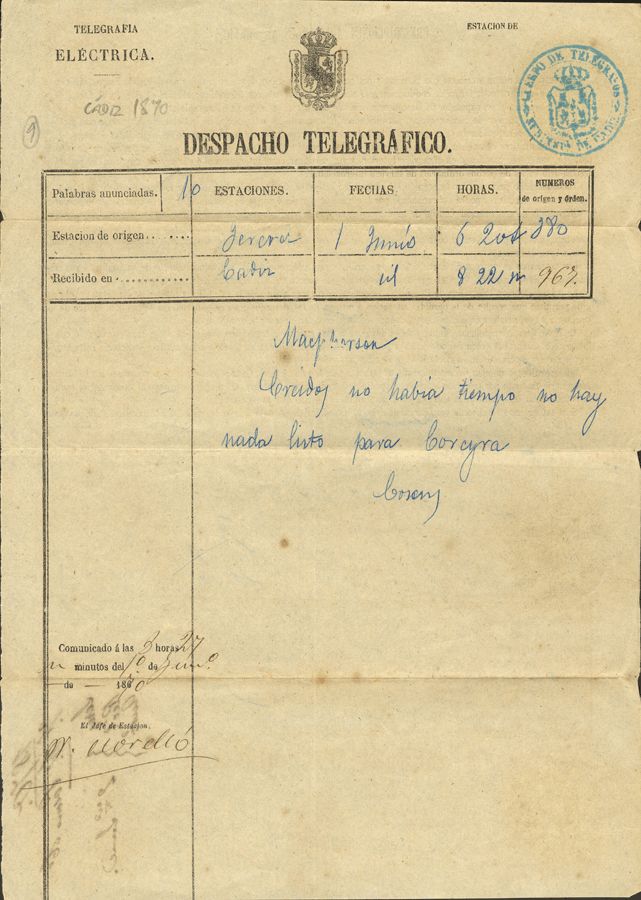 TELEGRAFIA
ELÉCTRICA.
ESTACION DE
CÁDIZ 1870
9
CUERPO DE TELEGRAFOS
DE CADIZ
DESPACHO TELEGRÁFICO.
Palabras anunciadas. 10 ESTACIONES. FECHAS HORAS. NUMEROS de origen y órden.
Estacion de origen Jerez 1 Junio 6 20 t 380
Recibido en Cadiz id 8 22 n 967
Macpherson
Creidos no habia tiempo no hay
nada listo para Corcyra
Cosens
Comunicado á las 8 horas 27
n minutos del 1º de Junio
de — 1870
El Jefe de Estacion.